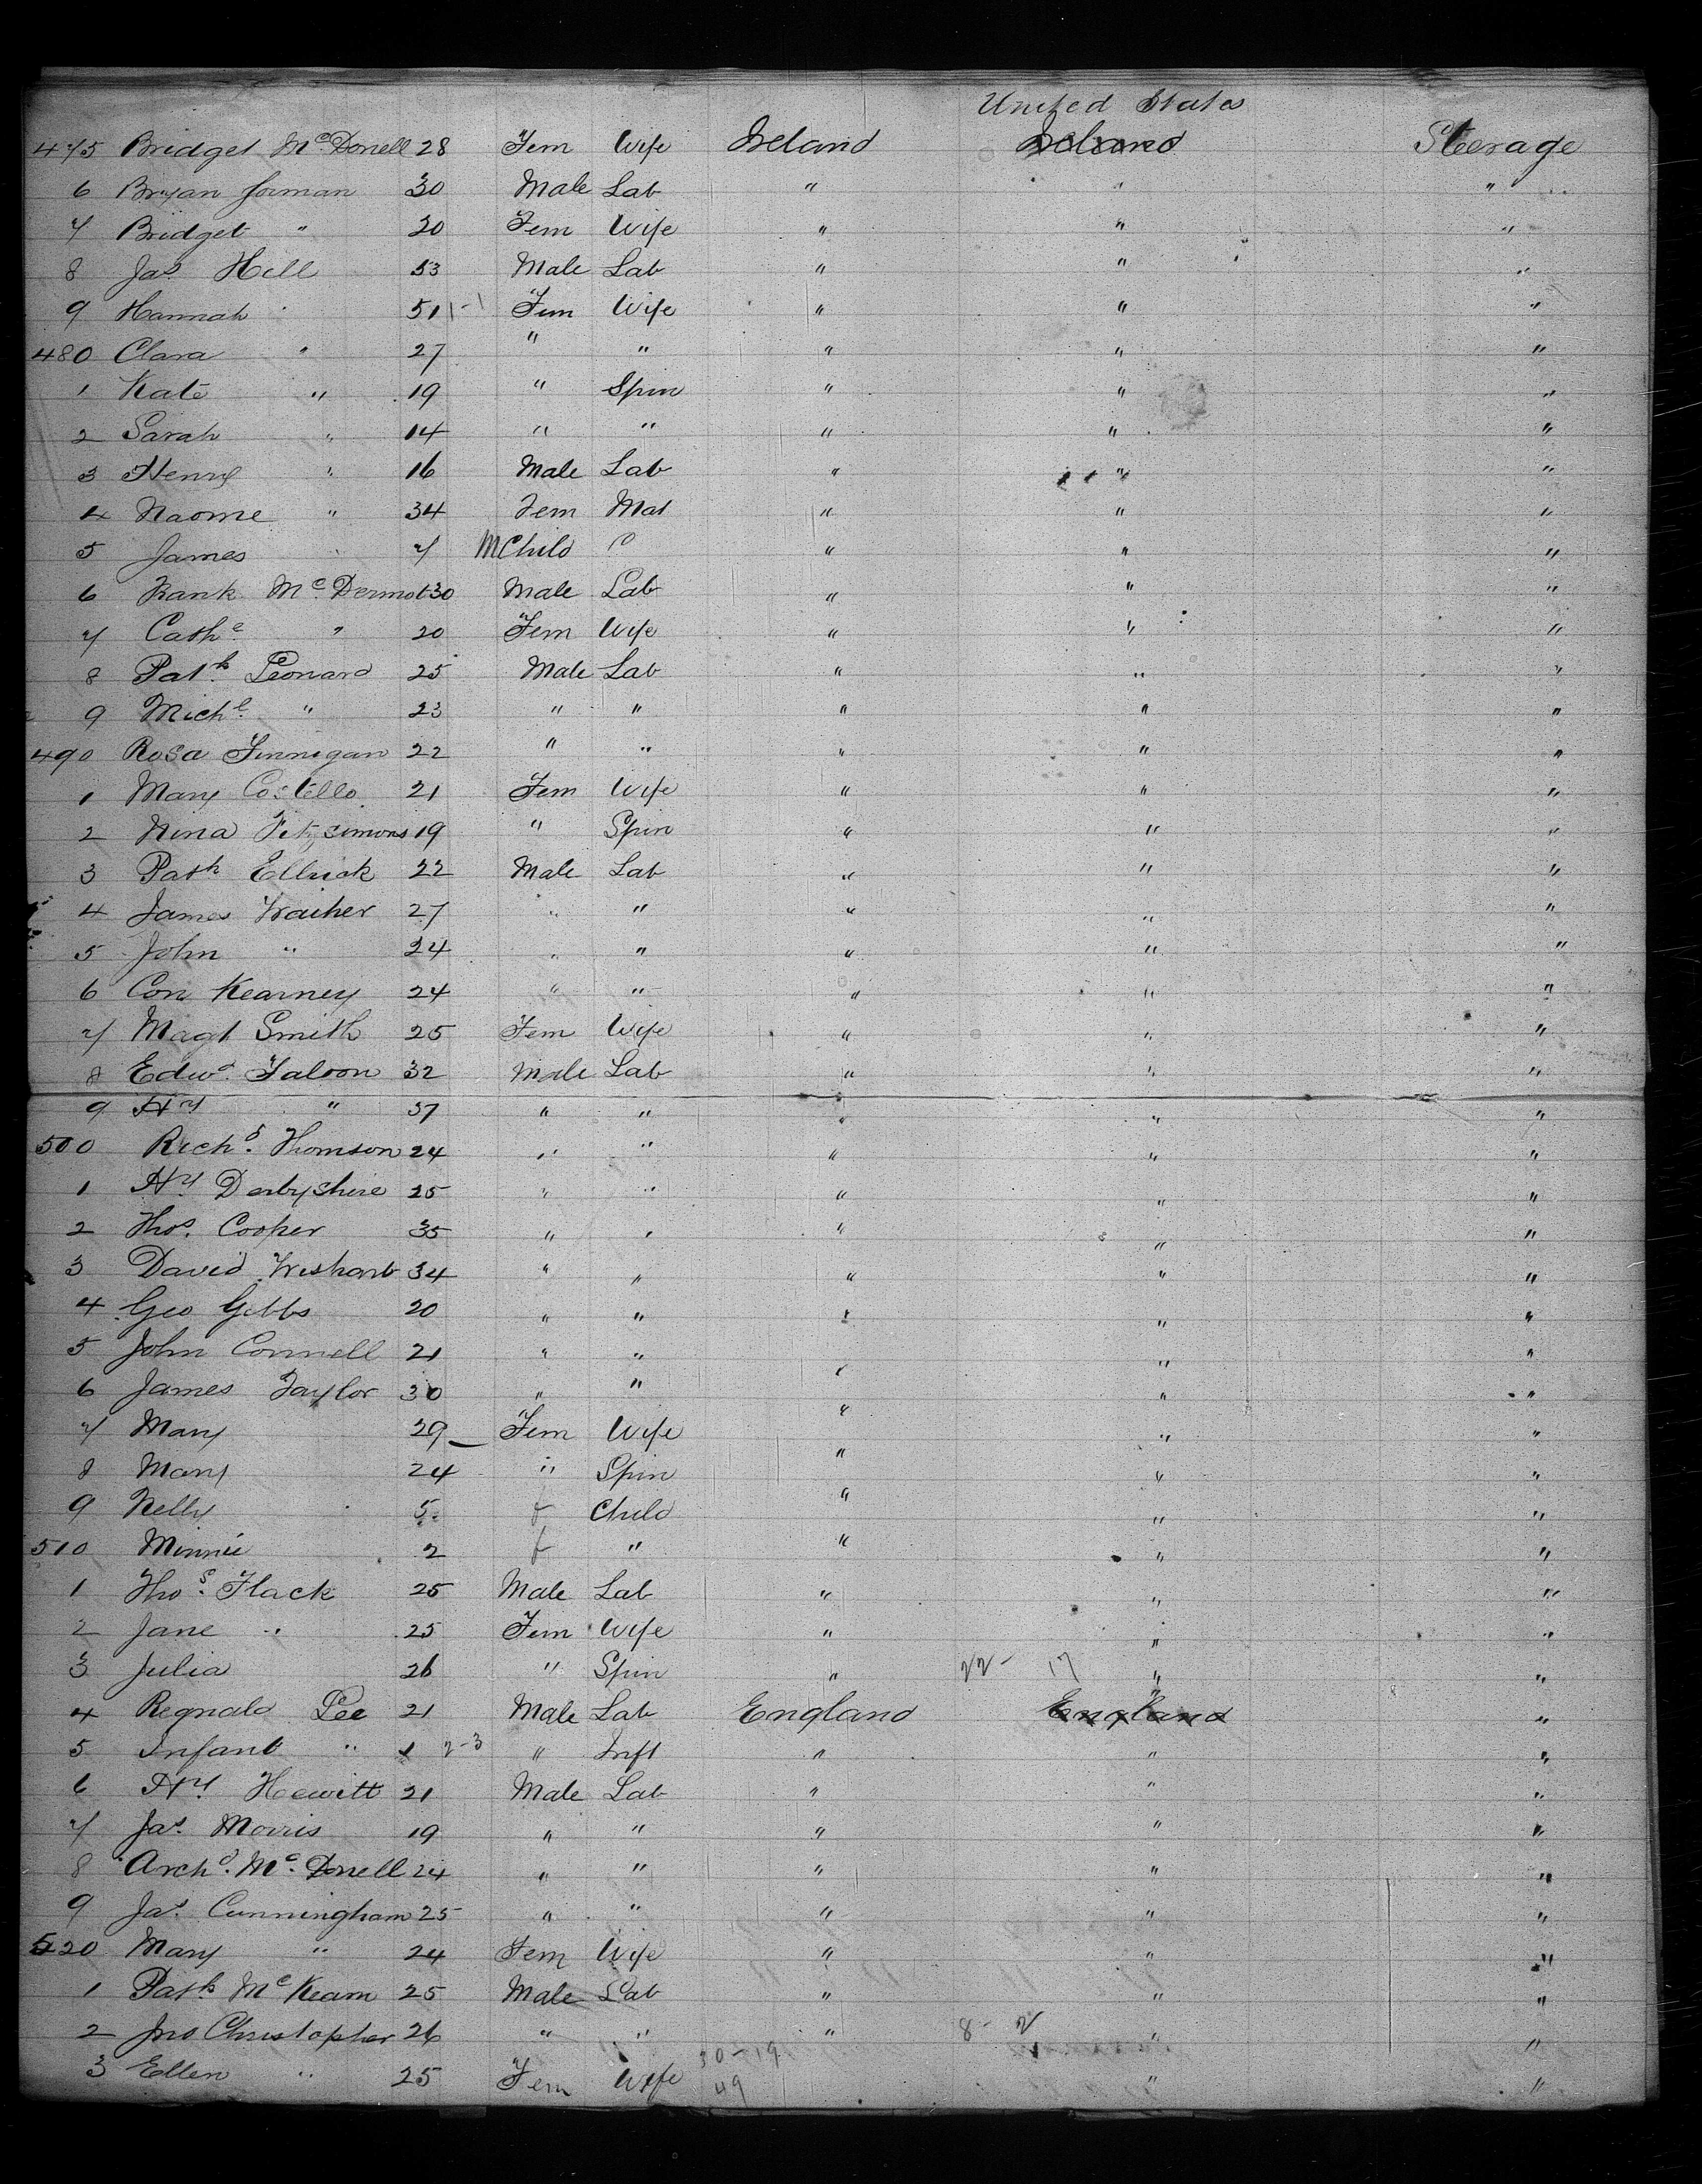 United States
475 Bridget McDonell 28 Fem Wife Ireland Ireland Steerage
6 Bryan Jorman 30 Male Lab " " "
7 Bridget " 20 Fem Wife " " "
8 Jas Hill 53 Male Lab " " "
9 Hannah " 51 1-1 Fem Wife " " "
480 Clara " 27 " " " " "
1 Kate " 19 " Spin " " "
2 Sarah " 14 " " " " "
3 Henry " 16 Male Lab " " "
4 Naome " 34 Fem Mat " " "
5 James " 7 M Child C " " "
6 Frank McDermot 30 Male Lab " " "
7 Cathe " 20 Fem Wife " " "
8 Patk Leonard 25 Male Lab " " "
9 Michl " 23 " " " " "
490 Rosa Finnigan 22 " " " " "
1 Mary Costello 21 Fem Wife " " "
2 Nina Fitzsimons 19 " Spin " " "
3 Patk Ellrick 22 Male Lab " " "
4 James Fraiher 27 " " " " "
5 John " 24 " " " " "
6 Con Kearney 24 " " " " "
7 Magt Smith 25 Fem Wife " " "
8 Edwd Faloon 32 Male Lab " " "
9 Hy " 37 " " " " "
500 Richd Thomson 24 " " " " "
1 Hy Derbyshire 25 " " " " "
2 Thos Cooper 35 " " " " "
3 David Wishart 34 " " " " "
4 Geo Gibbs 20 " " " " "
5 John Connell 21 " " " " "
6 James Taylor 30 " " " " "
7 Mary 29 Fem Wife " " "
8 Mary 24 " Spin " " "
9 Nelly 5 f Child " " "
510 Minnie 2 f " " " "
1 Thos Flack 25 Male Lab " " "
2 Jane " 25 Fem Wife " " "
3 Julia 26 " Spin " 22- 17 " "
4 Regnald Lee 21 Male Lab England England "
5 Infant " 1 2-3 " Inft " " "
6 Hy Hewitt 21 Male Lab " " "
7 Jas Morris 19 " " " " "
8 Archd McDonell 24 " " " " "
9 Jas Cunningham 25 " " " " "
520 Mary " 24 Fem Wife " " "
1 Patk McKeam 25 Male Lab " " "
2 Jno Christopher 26 " " " 8- 2 " "
30-19
3 Ellen " 25 Fem Wife 49 " "